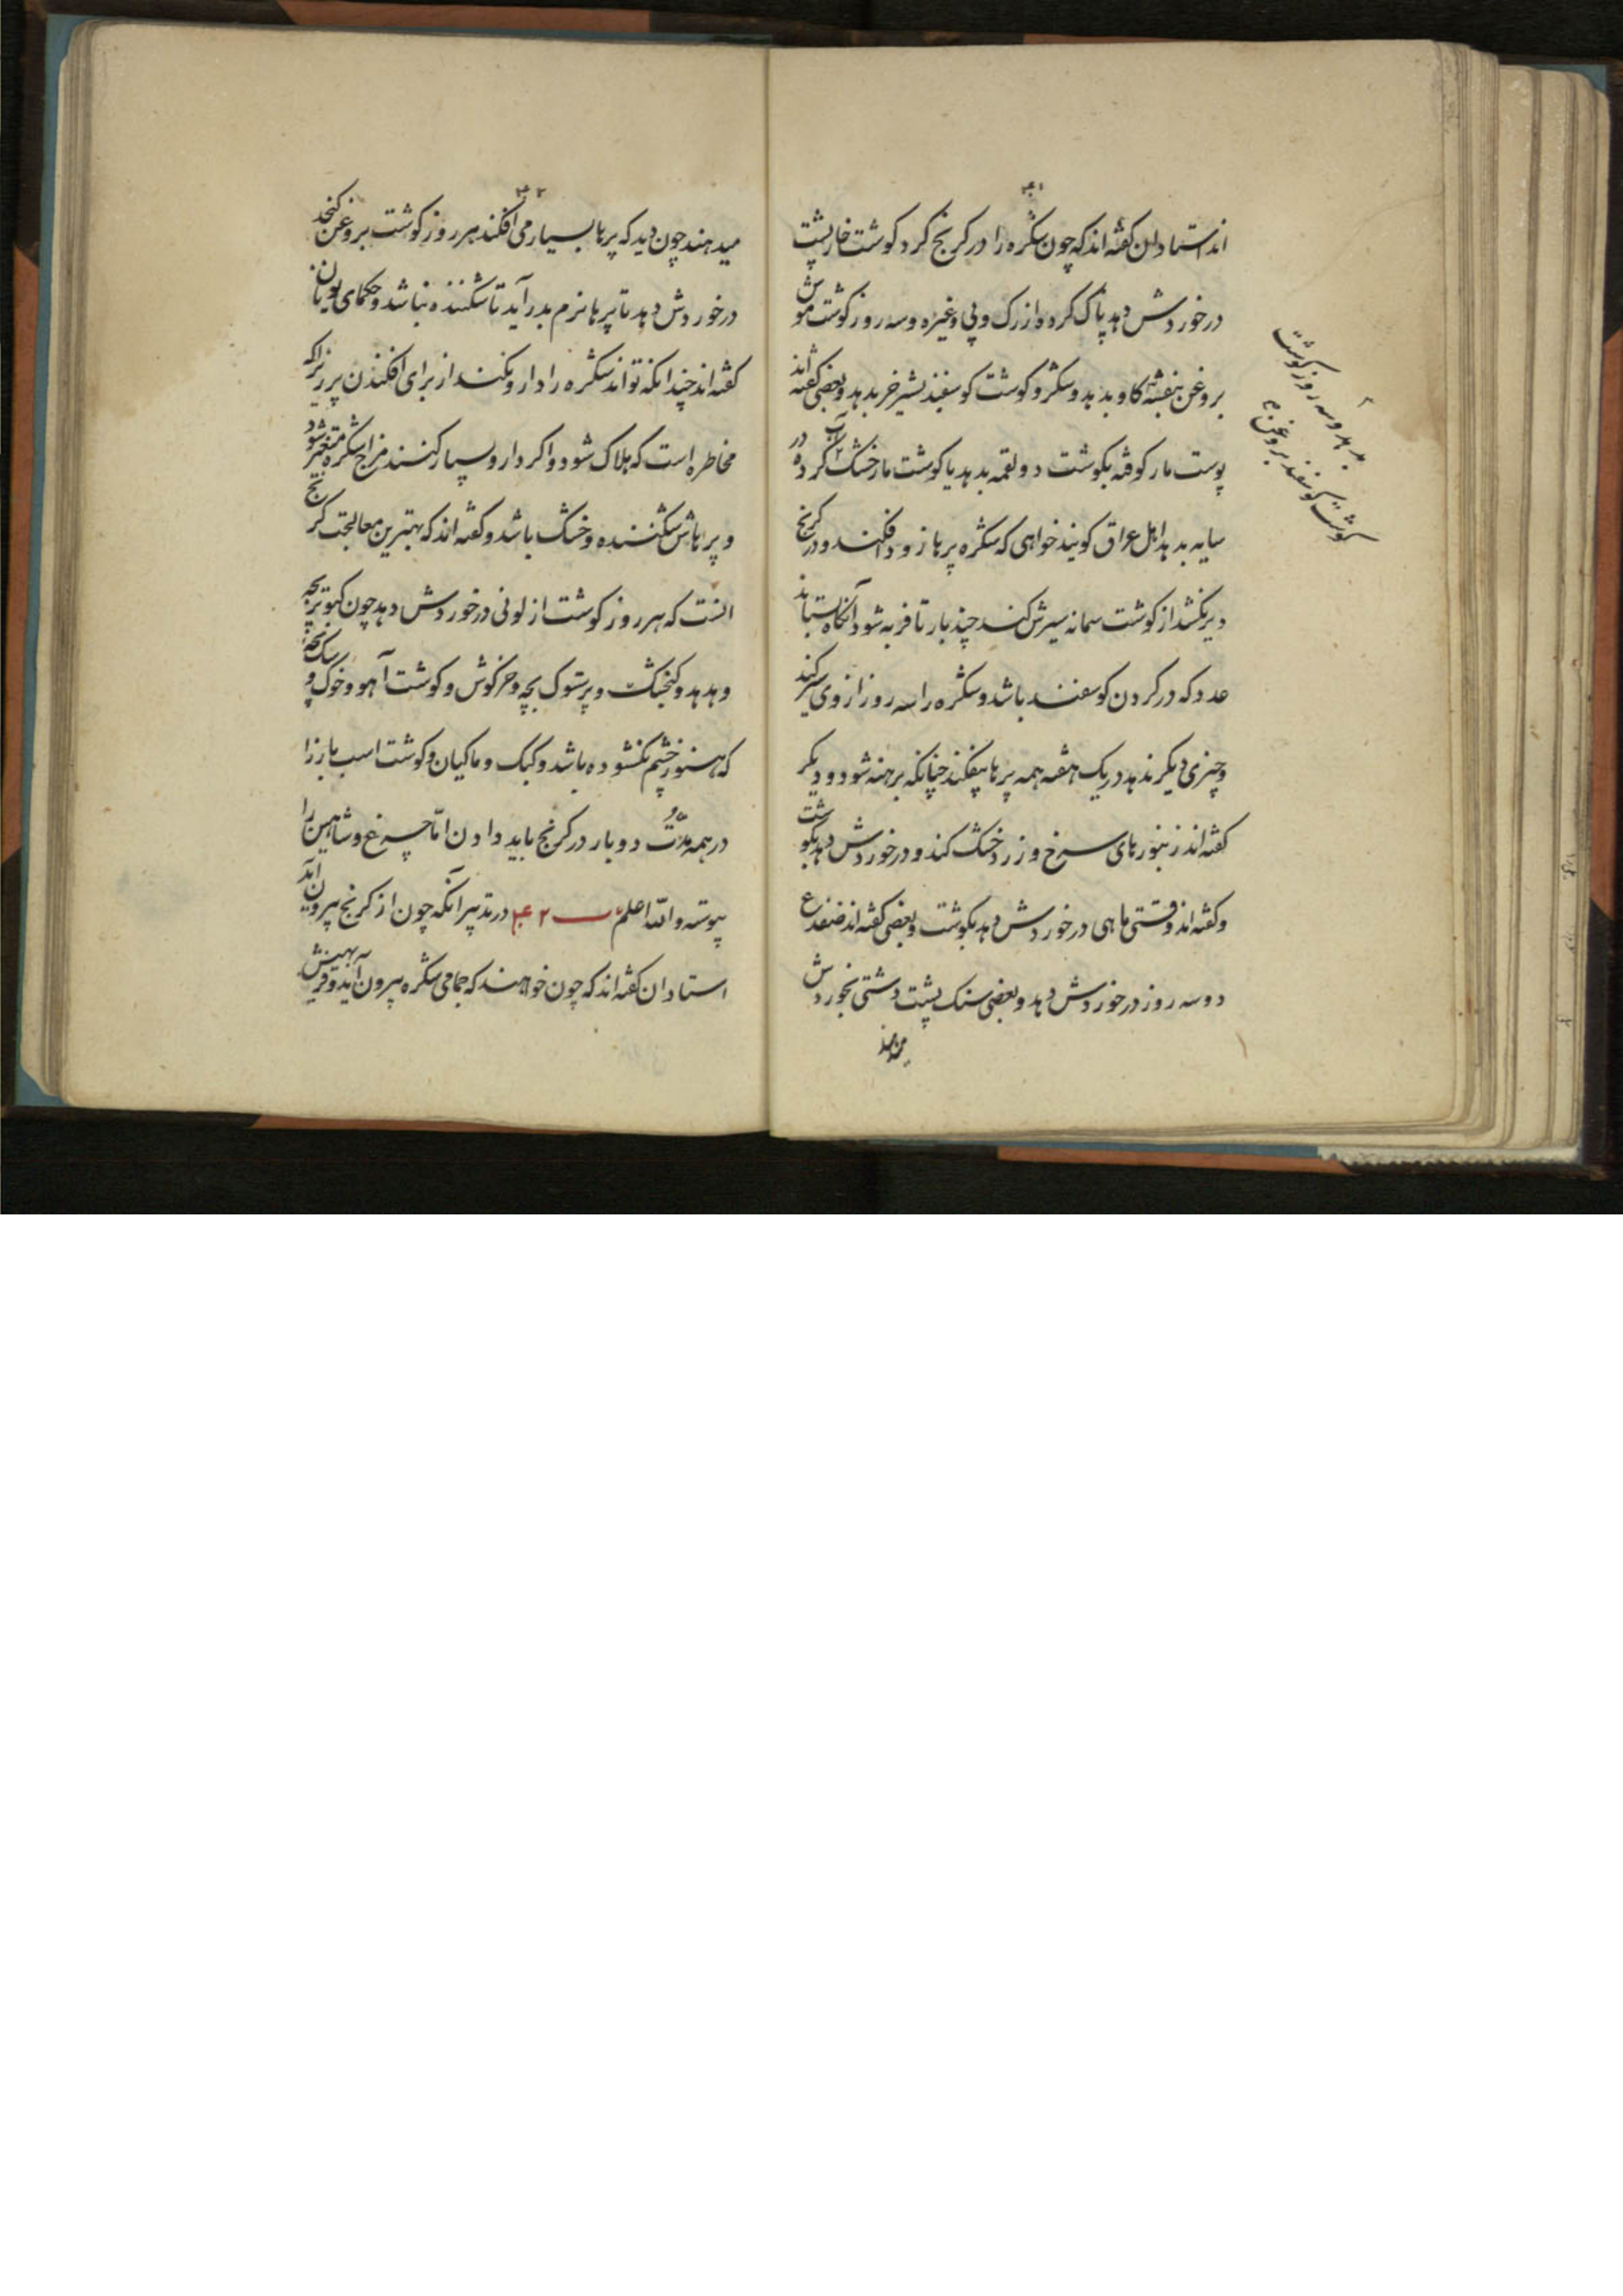 ۴۱
اند استادان کفته اند که چون شکره را در کریج کرد کوشت خارپشت
در خوردش دهد پاک کرده از رک و پی و غیره و سه روز کوشت موش
بروغن بنفشه کاو بدهد و شکر و کوشت کوسفند بشیر خر بدهد و بعضی کفته اند
پوست مار کوفته بکوشت دو لقمه بدهد یا کوشت مار خشک کرده در
سایه بدهد اهل عراق کویند خواهی که شکره پرها زود افکند و در کریج
دیر نکشد از کوشت سمانه سیرش کند چند بار تا فربه شود آنکاه بستاند
عدد که در کردن کوسفند باشد و شکره را سه روز از وی سیر کند
و چیزی دیکر ندهد در یک هفته همه پرها بیفکند چنانکه برهنه شود و دیکر
کفته اند زنبورهای سرخ و زرد خشک کند و در خوردش دهد بکوشت
و کفته اند وقتی ماهی در خوردش دهد بکوشت و بعضی کفته اند ضفدع
دو سه روز در خوردش دهد و بعضی سنک پشت دشتی بخوردش
بدهد و سه روز کوشت
کوشت کوسفند بروغن
۴۲
میدهند چون دید که پرها بسیار می افکند هر روز کوشت بروغن کنجد
در خوردش دهد تا پرها نرم بدر آید تا شکننده نباشد و حکمای یونان
کفته اند چندانکه تواند شکره را دارو نکنند از برای افکندن پر زیراکه
مخاطره است که هلاک شود و اکر دارو بسیار کنند مزاج شکره متغیر شود
و پرهاش شکننده و خشک باشد و کفته اند که بهترین معالجت کریج
انست که هر روز کوشت از لونی در خوردش دهد چون کبوتر بچه
و هدهد و کنجشک و پرستوک بچه و خرکوش و کوشت آهو و خوک و سک بچه
که هنوز چشم نکشوده باشد و کبک و ماکیان و کوشت اسب بار را
در همه مدّت دو بار در کریج باید دادن امّا چرغ و شاهین را
پیوسته و الله اعلم ۴۲ در تدبیر آنکه چون از کریج بیرون آید
استادان کفته اند که چون خواهند که جمامی شکره بیرون آید و فربهیش